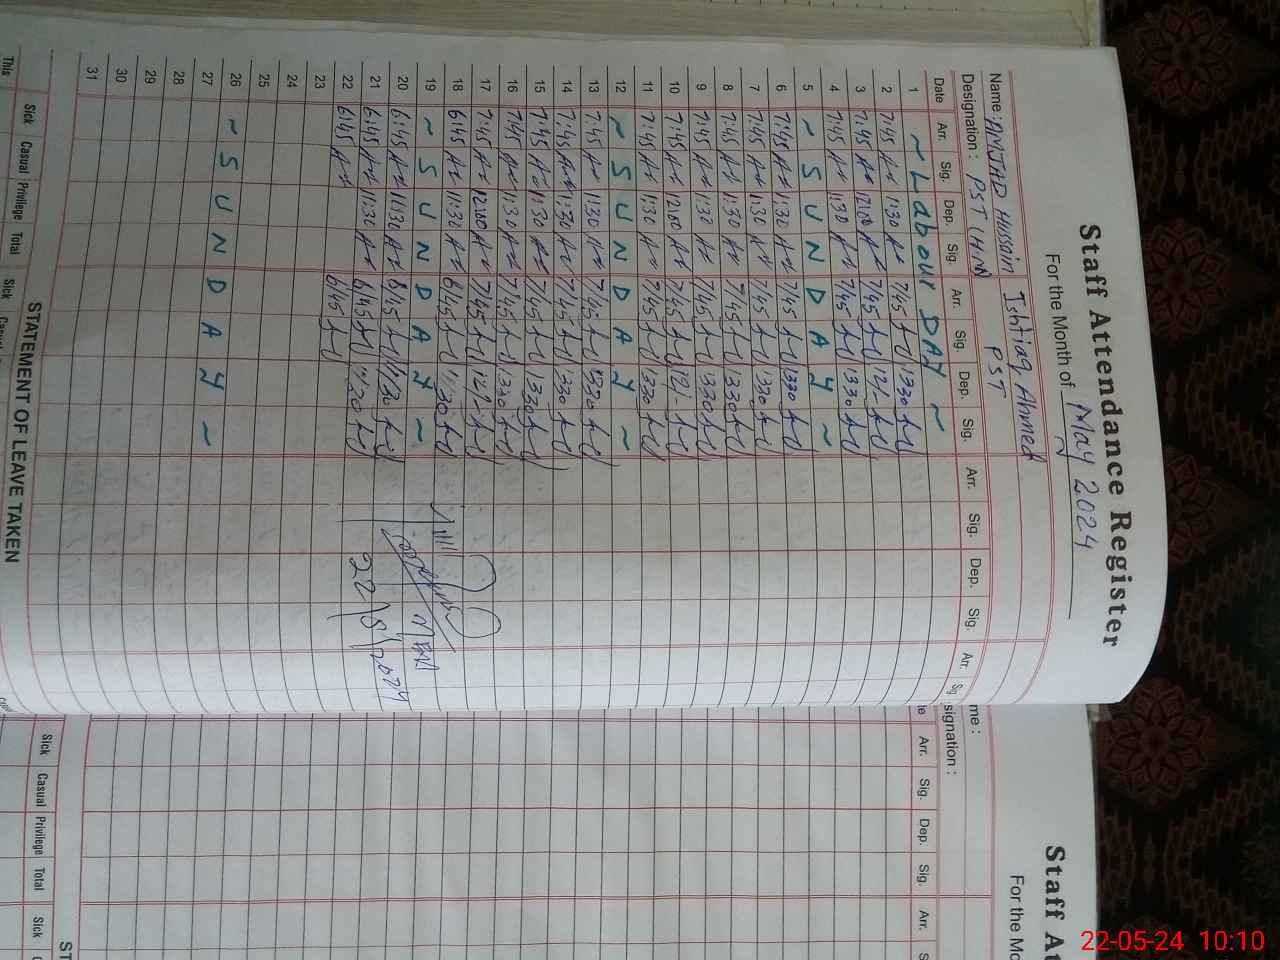 Staff Attendance Register
For the Month of May 2024
Name: AMJAD Hussain Ishtiaq Ahmed
Designation: PST (H.M) PST
Date Arr. Sig. Dep. Sig. Arr. Sig. Dep. Sig. Arr. Sig. Dep. Sig. Arr. Sig.
1 ~ Labour DAY ~
2 7:45 1:30 7:45 1330
3 7:45 12:00 7:45 12/-
4 7:45 1:30 7:45 1330
5 ~ SUNDAY ~
6 7:45 1:30 7:45 1330
7 7:45 1:30 7:45 1330
8 7:45 1:30 7:45 1330
9 7:45 1:30 7:45 1330
10 7:45 12:00 7:45 12/-
11 7:45 1:30 7:45 1330
12 ~ SUNDAY ~
13 7:45 1:30 7:45 1330
14 7:45 1:30 7:45 1330
15 7:45 1:30 7:45 1330
16 7:45 1:30 7:45 1330
17 7:45 12:00 7:45 12/-
18 6:45 11:30 6:45 11:30
19 ~ SUNDAY ~
20 6:45 11:30 6:45 11:30
21 6:45 11:30 6:45 11:30
22 6:45 6:45
23
24
25
26 ~ SUNDAY ~
27
28
29
30
31
22/5/2024
STATEMENT OF LEAVE TAKEN
Sick Casual Privilege Total Sick
This
Staff At
For the Mo
me :
signation :
te Arr. Sig. Dep. Sig. Arr. S
ST
Sick Casual Privilege Total Sick C
22-05-24 10:10